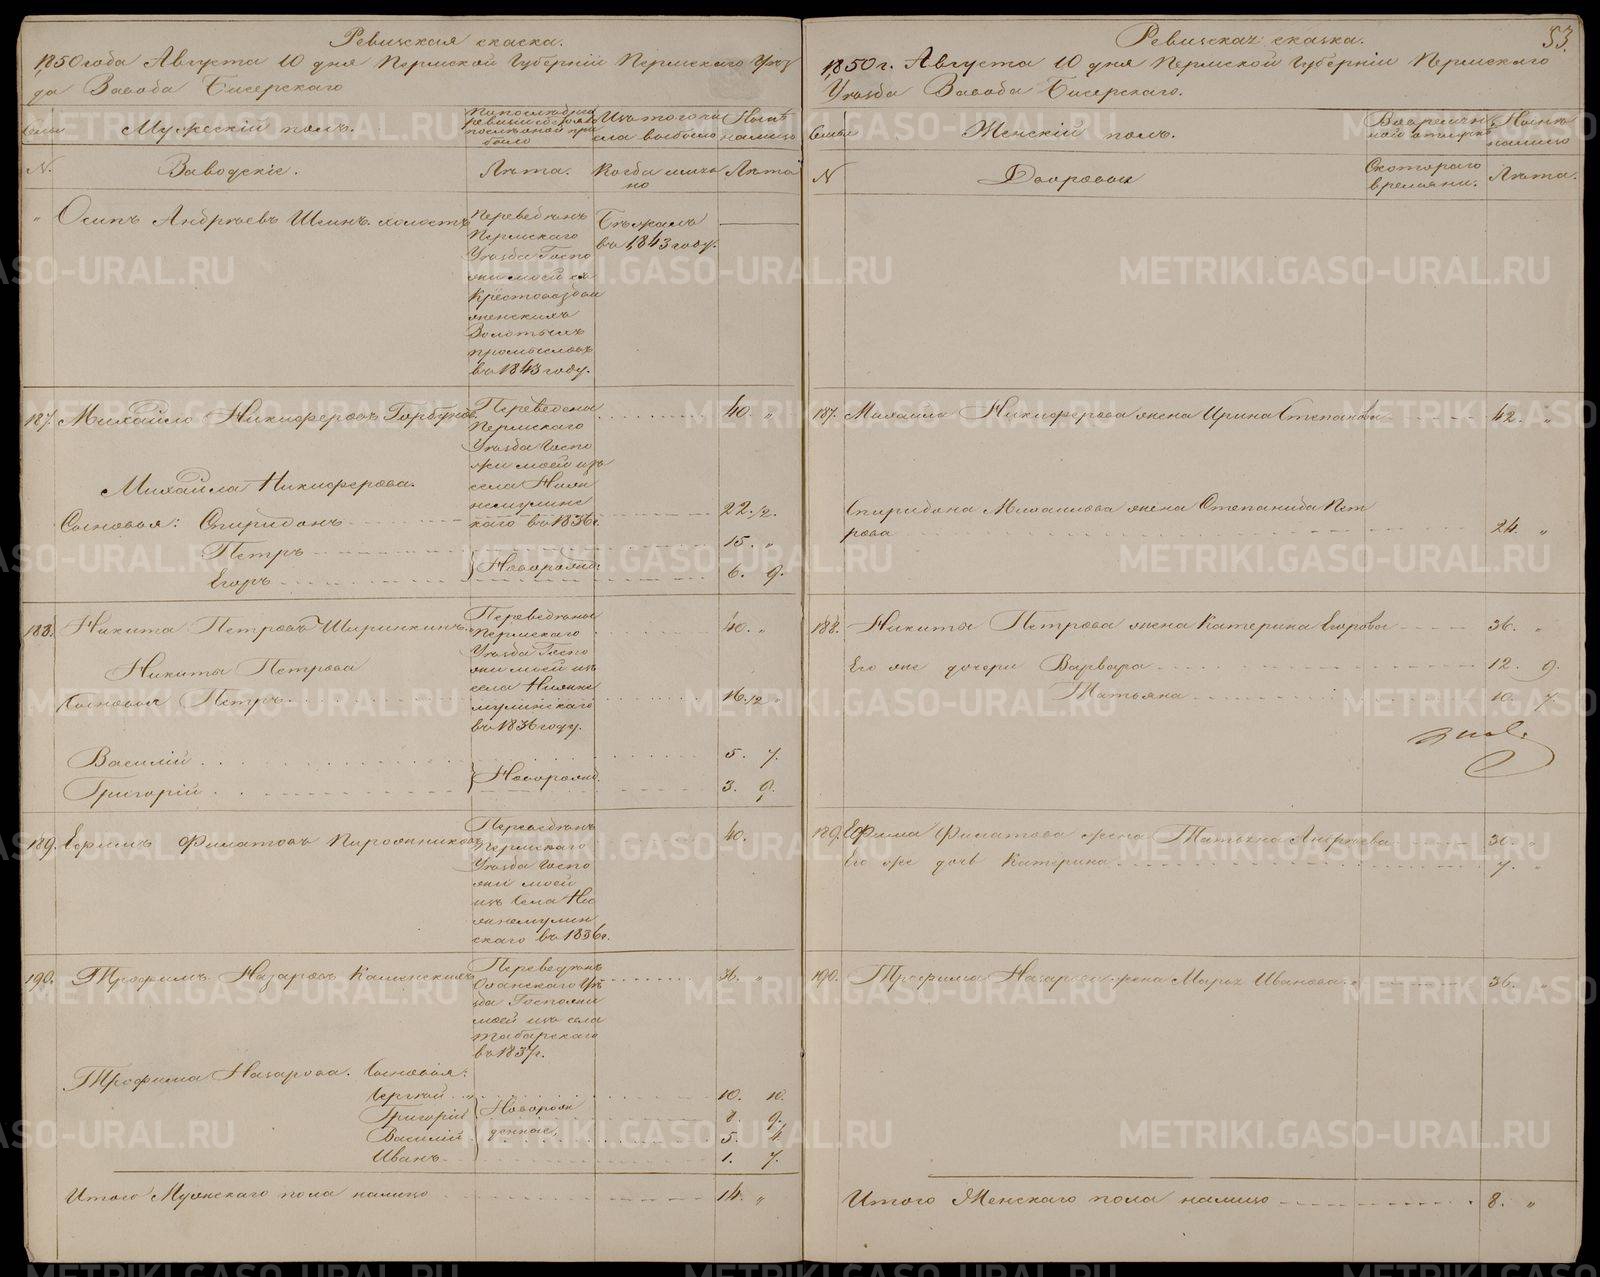 Ревизская сказка.
1850 года Августа 10 дня Пермской Губерніи Пермскаго Уѣз
да Завода Бисерскаго
Семьи
Мужескій полъ.
По последней ревизіи состояло и после оной прибыло
Изъ того числа выбыло
Ныне на лицо
N.
Заводскіе.
Лѣта.
Когда имянно
Лѣта
" Осипъ Андрѣевъ Шеинъ. холостъ
Переведенъ
Пермскаго
Уѣзда Госпо
жи моей съ
Крестовоздви
женскихъ
Золотыхъ
промысловъ
въ 1843 году.
Бѣжалъ
въ 1843 году.
187. Михайло Никиферовъ Горбуновъ 40. "
Переведены
Пермскаго
Уѣзда Госпо
жи моей изъ
села Нижн
немулинс
каго въ 1836 г.
Михайла Никиферова.
Сыновья: Спиридонъ 22 1/2.
Петръ 15. "
Егоръ 6. 9.
Новорожд:
188. Никита Петровъ Ширинкинъ. 40. "
Переведены
Пермскаго
Уѣзда Госпо
жи моей изъ
села Нижне
мулинскаго
въ 1836 году.
Никиты Петрова
Сыновья Петръ 16 1/2 "
Василій 5. 7.
Григорій 3. 9.
Новорожд.
189. Ефимъ Филатовъ Пирожниковъ 40.
Переведенъ
Пермскаго
Уѣзда Госпо
жи моей
изъ Села Ни
жнемулин
скаго въ 1836 г.
190. Трофимъ Назаровъ Каменскихъ 36. "
Переведенъ
Оханскаго Уѣ
зда Госпожи
моей изъ села
Таборскаго
въ 1837 г.
Трофима Назарова. Сыновья:
Сергѣй 10. 10.
Григорій 8. 9.
Василій 5. 4.
Иванъ 1. 7.
Новорож
денные,
Итого Мужскаго пола налицо 14. "
53.
Ревизская сказка.
1850 г. Августа 10 дня Пермской Губерніи Пермскаго
Уѣзда Завода Бисерскаго.
Семьи
Женскій полъ.
Во временной отлучкѣ
Нынѣ налицо
N
Дворовыя
Скотораго времяни.
Лѣта.
187. Михаила Никиферова жена Ирина Степанова 42. "
Спиридона Михаилова жена Степанида Пет
рова 24. "
188. Никиты Петрова жена Катерина Егорова 36. "
Его же дочери Варвара 12. 9.
Татьяна 10. 7.
189. Ефима Филатова жена Татьяна Андреева 30. "
Его же дочь Катерина 7. "
190. Трофима Назарова жена Марья Иванова. 36. "
Итого Женскаго пола налицо 8. "
METRIKI.GASO-URAL.RU